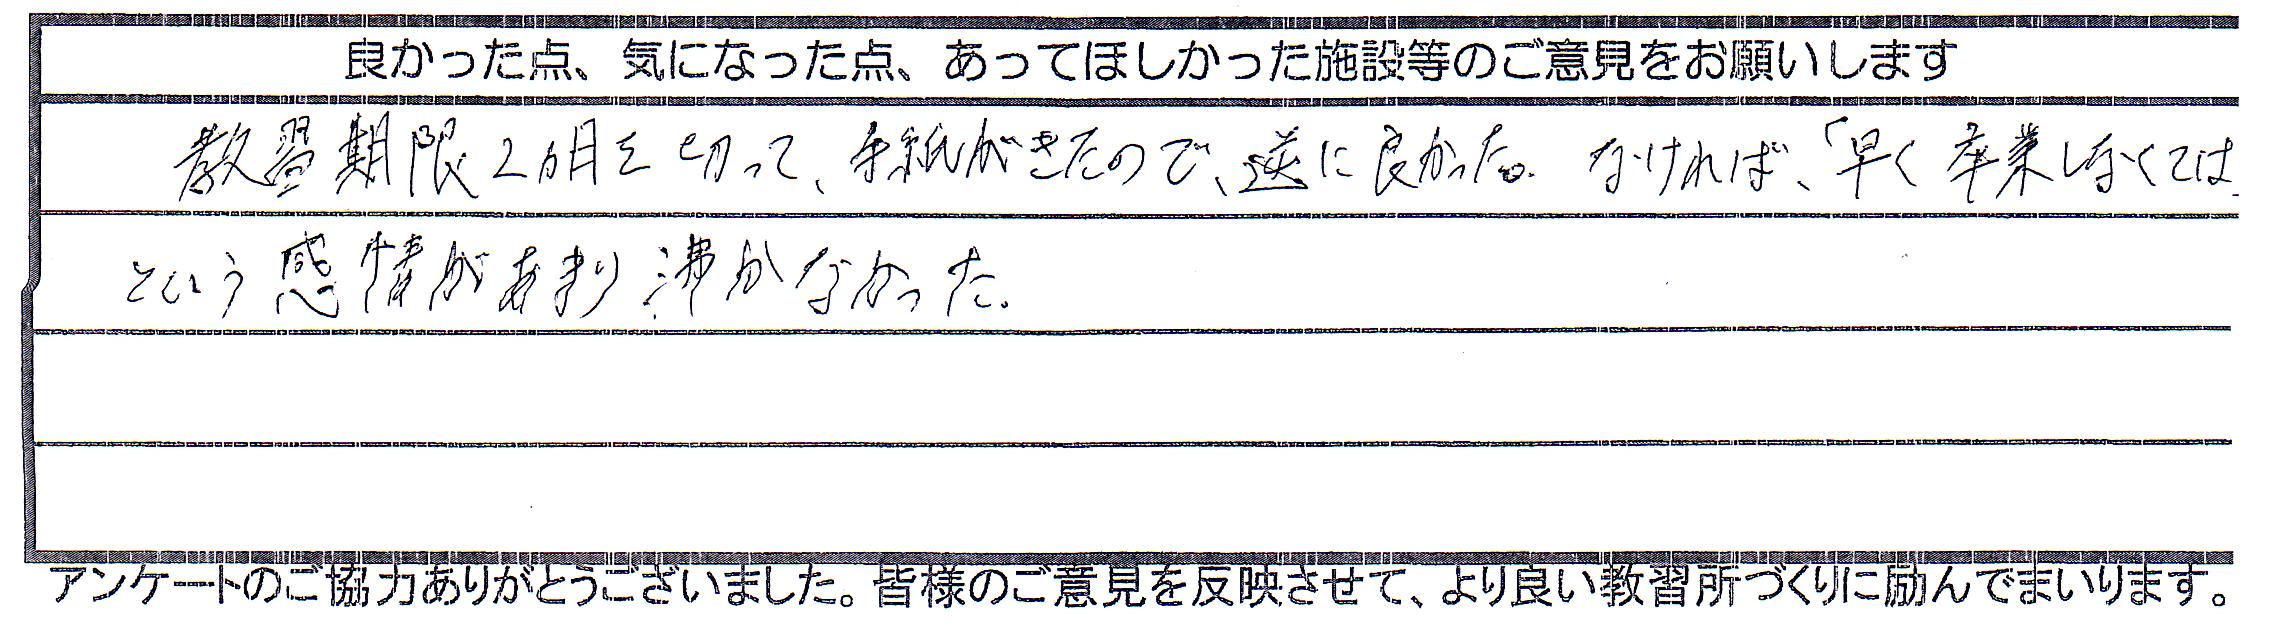 良かった点、気になった点、あってほしかった施設等のご意見をお願いします
教習期限2ヵ月を切って、手紙がきたので、逆に良かった。なければ、「早く卒業しなくては
という感情があまり沸かなかった。
アンケートのご協力ありがとうございました。皆様のご意見を反映させて、より良い教習所づくりに励んでまいります。